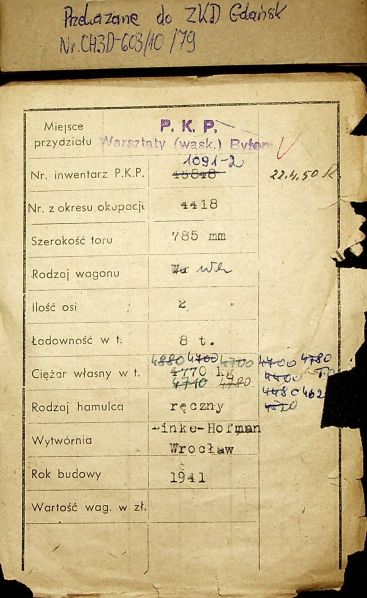 Przekazane do ZKD Gdańsk
Nr. CH3D-603/10/79
Miejsce przydziału P. K. P. Warsztaty (wąsk.) Bytom
1091-2
Nr. inwentarz P.K.P. 45848 22.4.50
Nr. z okresu okupacji 4418
Szerokość toru 785 mm
Rodzaj wagonu Ww
Ilość osi 2
Ładowność w t. 8 t.
4880 4700 4700 4700 4780
Ciężar własny w t. 4770 kg 4400
4710 4780 4480 462
4520
Rodzaj hamulca ręczny
Wytwórnia inke-Hofman Wrocław
Rok budowy 1941
Wartość wag. w zł.